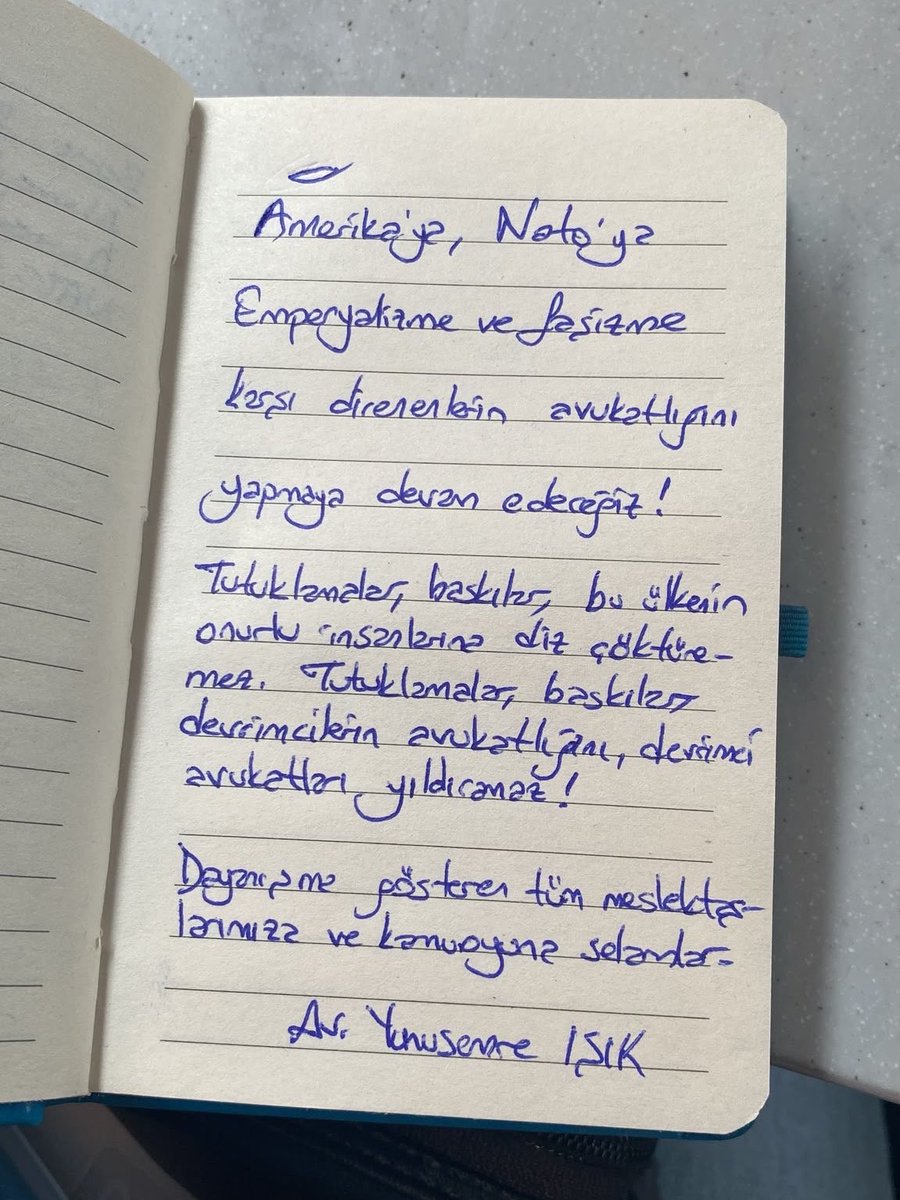 Amerika'ya, Nato'ya
Emperyalizme ve faşizme
karşı direnenlerin avukatlığını
yapmaya devam edeceğiz!
Tutuklamalar, baskılar, bu ülkenin
onurlu insanlarına diz çöktüre-
mez. Tutuklamalar, baskılar
devrimcilerin avukatlığını, devrimci
avukatları yıldıramaz!
Dayanışma gösteren tüm meslektaş-
larımıza ve kamuoyuna selamlar-
Av. Yunusemre IŞIK